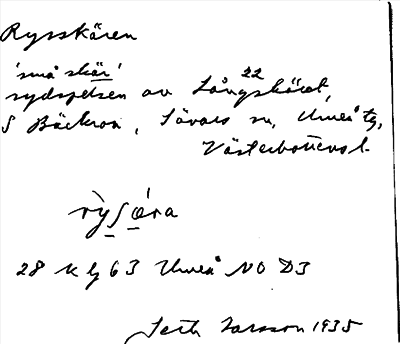 Rysskären
'små skär'
22
sydspetsen av Långskäret,
S Bäckroa, Sävars sn, Umeå tg,
Västerbottens l.
rỳʃǿra
28 k lj 63 Umeå NO D3
Seth Larsson 1935